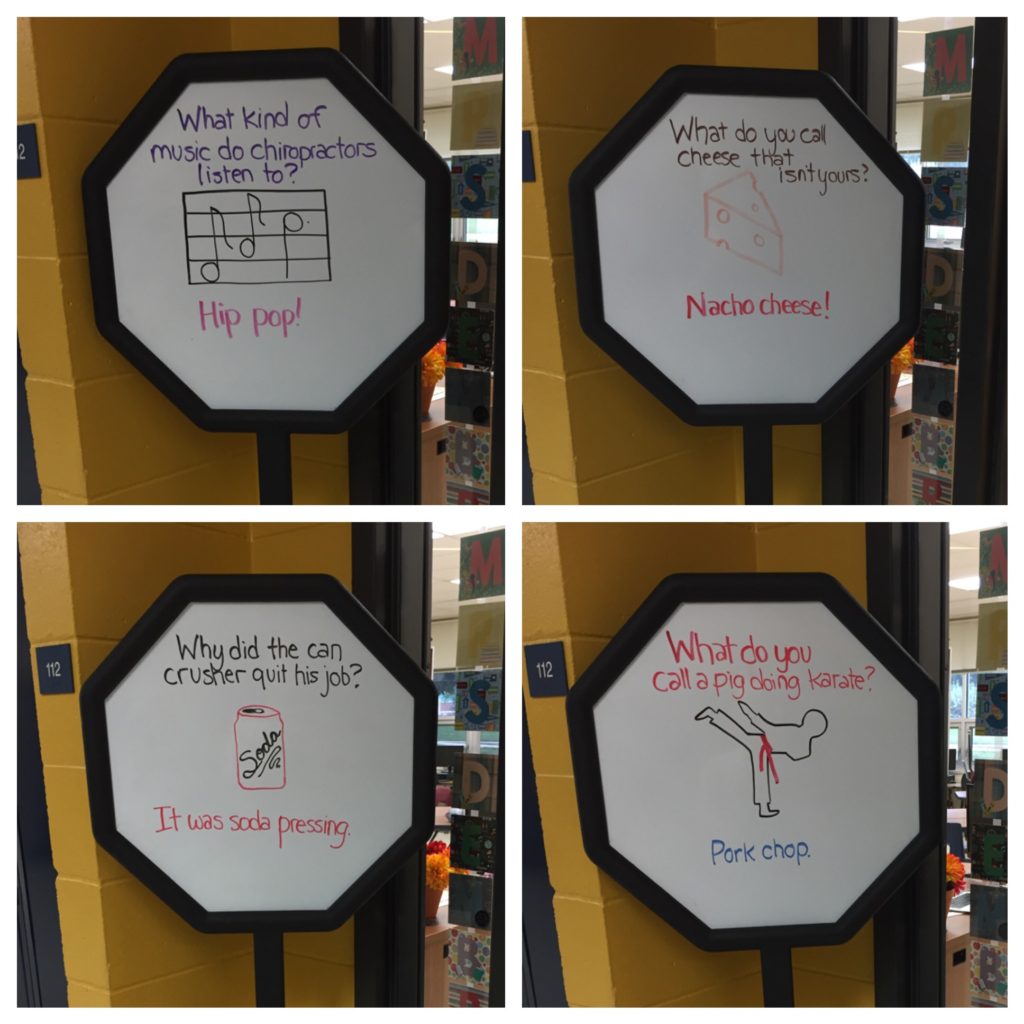 What kind of
music do chiropractors
listen to?
Hip pop!
2
M
P
S
D
E
What do you call
cheese that
isn't yours?
Nacho cheese!
M
P
S
D
E
B
R
112
Why did the can
crusher quit his job?
Soda
It was soda pressing.
M
P
S
D
E
112
What do you
call a pig doing karate?
Pork chop.
M
S
D
E